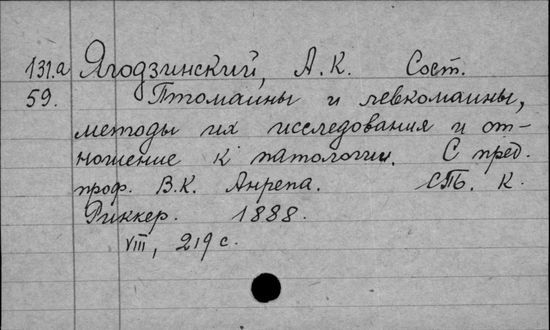 131.а Ягодзинский, А.К. Сост.
59. Птомаины и левкомаины,
методы их исследования и от-
ношение к патологии. С пред.
проф. В.К. Анрепа. СПб. К.
Риккер. 1888.
VIII, 219 с.